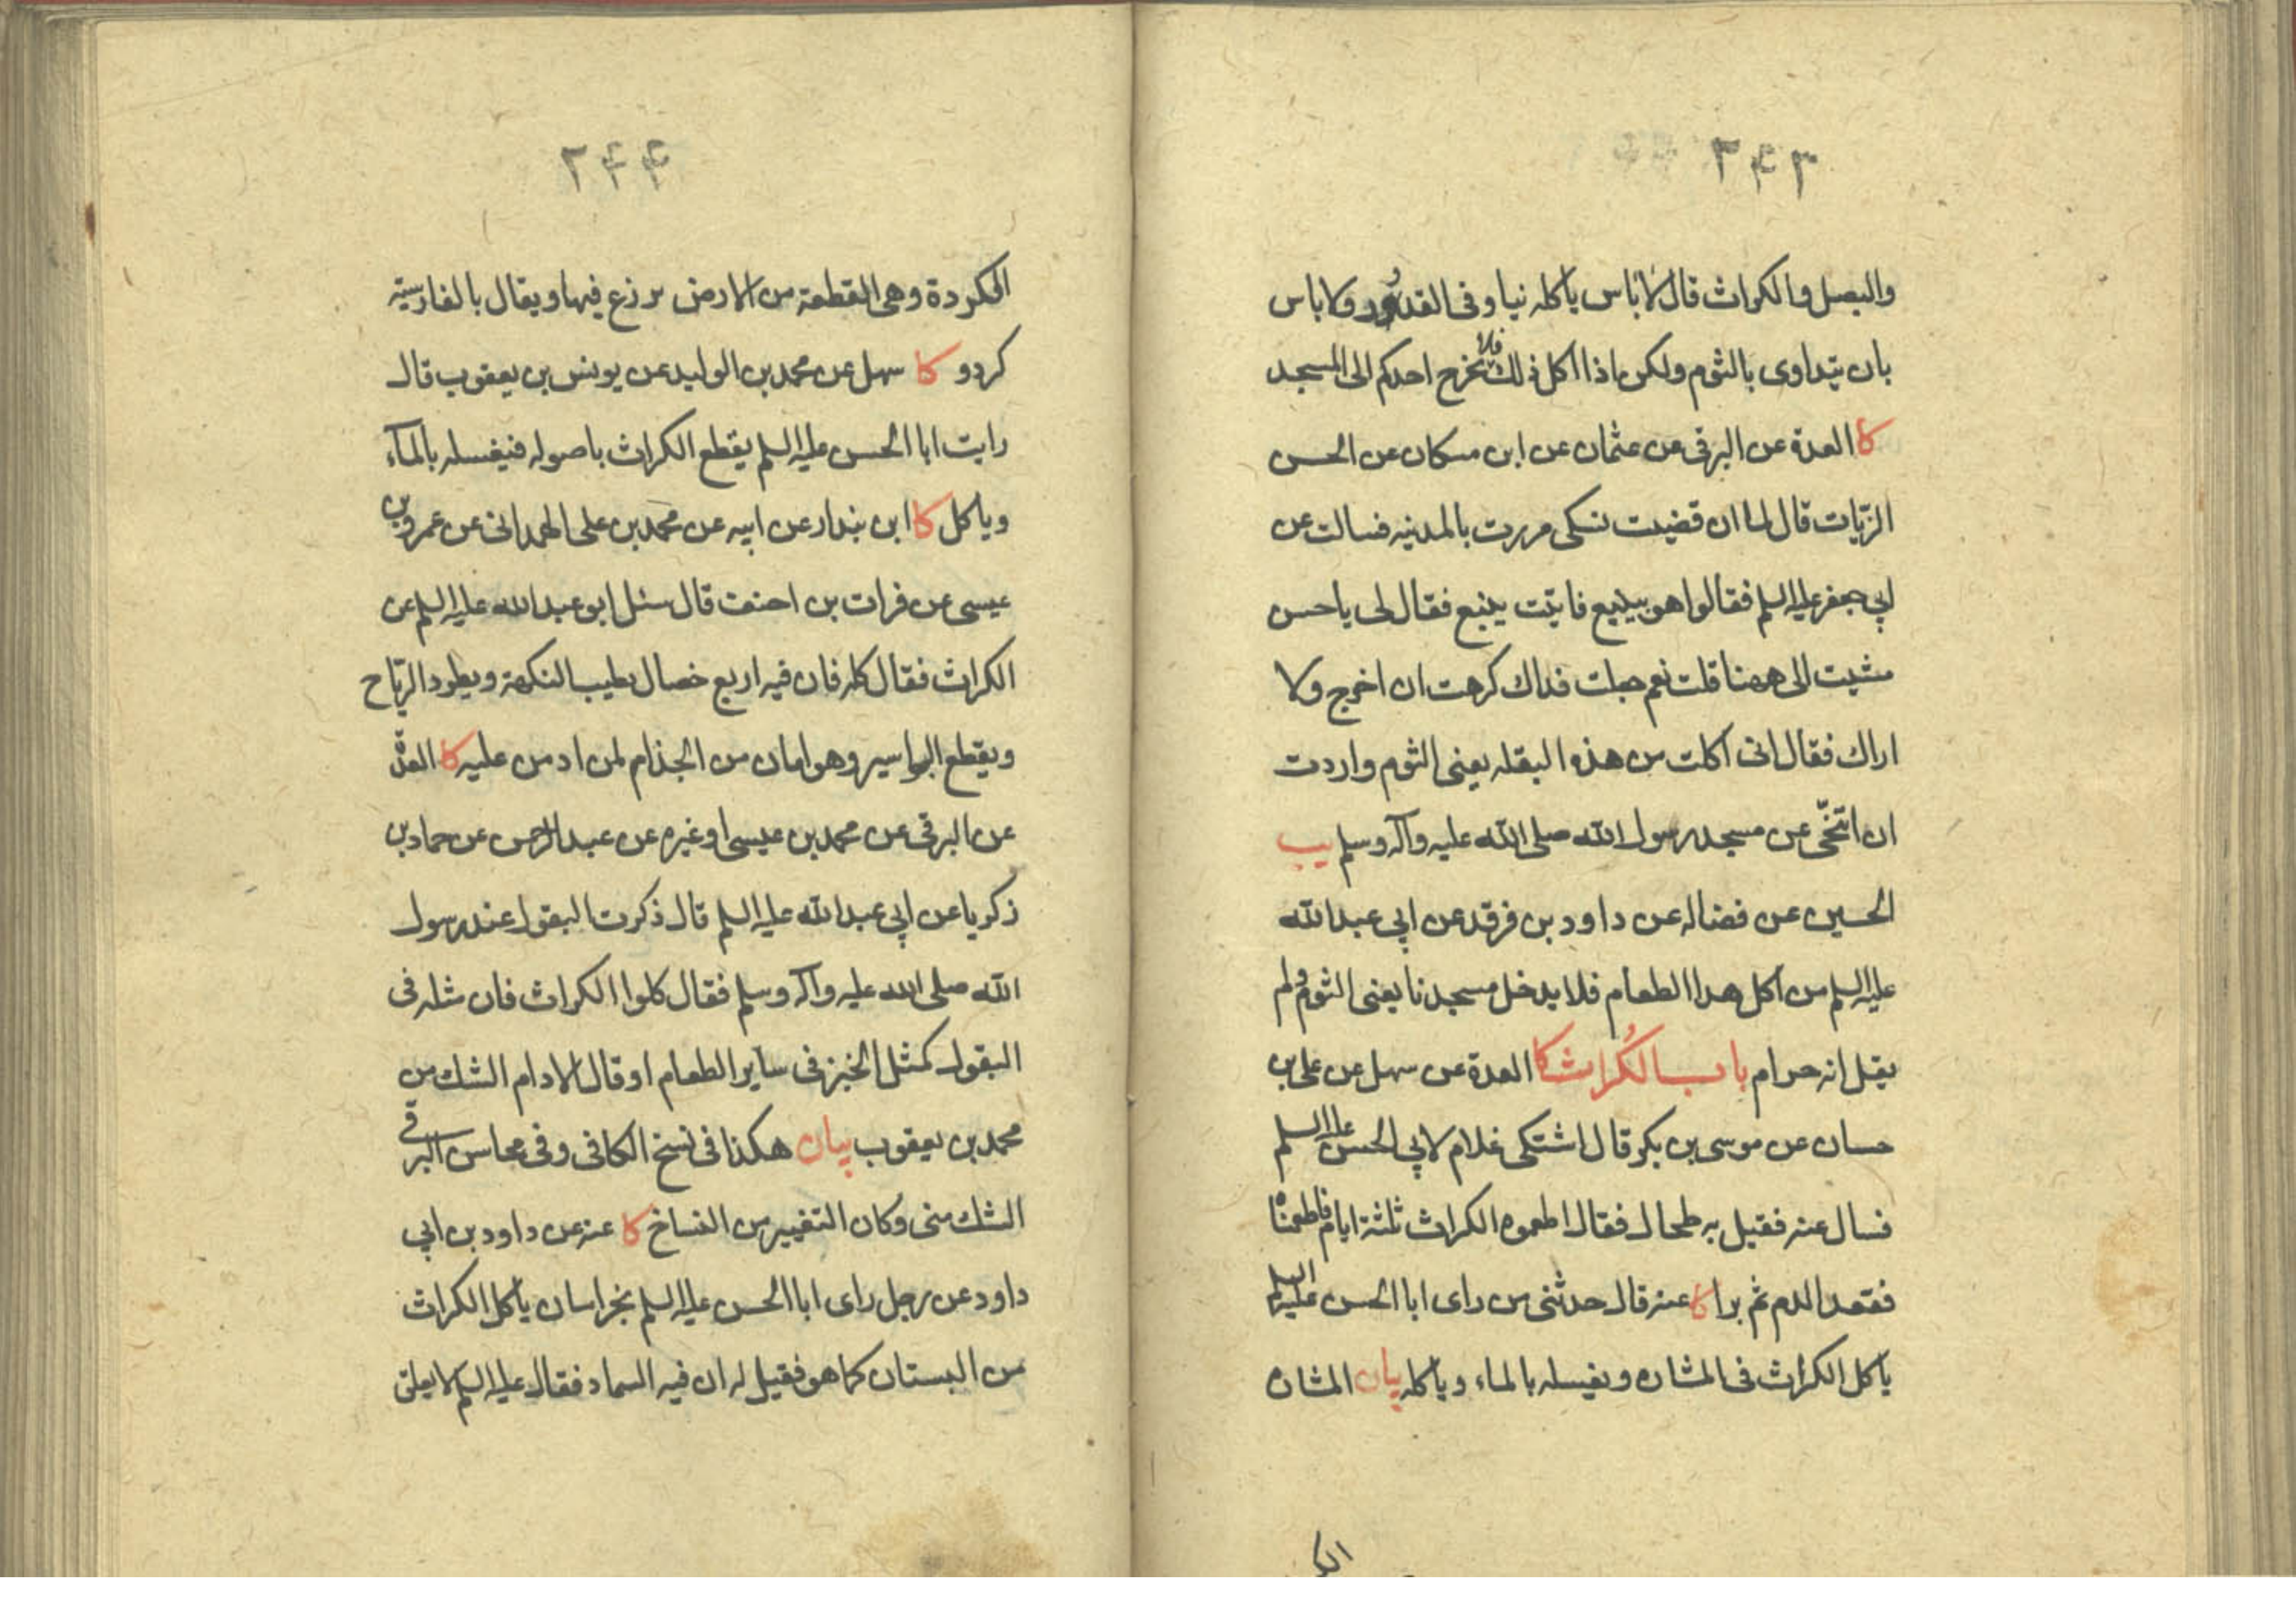 ۲۴۳
والبصل والكراث قال لاباس ياكله نيا وفى القدور ولاباس
بان يتداوى بالثوم ولكن اذا اكل ذلك فلا يخرج احدكم الى المسجد
كا العدة عن البرقى عن عثمان عن ابن مسكان عن الحسن
الزيّات قال لما ان قضيت نسكى مررت بالمدينه فسالت عن
ابي جعفر عليه السلم فقالوا هو بينبع فاتيت ينبع فقال لى ياحسن
مشيت الى ههنا قلت نعم جعلت فداك كرهت ان اخرج ولا
اراك فقال انى اكلت من هذه البقله يعنى الثوم واردت
ان اتنحّى عن مسجد رسول الله صلى الله عليه وآله وسلم يب
الحسين عن فضاله عن داود بن فرقد عن ابي عبدالله
عليه السلم من اكل هدا الطعام فلا يدخل مسجدنا يعنى الثوم ولم
يقل انه حرام باب الكُراث كا العدة عن سهل عن على بن
حسان عن موسى بن بكر قال اشتكى غلام لابي الحسن عليه السلم
فسال عنه فقيل به طحال فقال اطعموه الكراث ثلثة ايام فاطعمناه
فقعد الدم ثم برا كا عنه قال حدثنى من راى ابا الحسن عليه السلم
ياكل الكراث فى المشاره ويغسله بالماء وياكله بيان المشاره
الكر
۲۴۴
الكردة وهى القطعة من الارض يزرع فيها ويقال بالفارسيّة
كردو كا سهل عن محمد بن الوليد عن يونس بن يعقوب قال
رايت ابا الحسن عليه السلم يقطع الكراث باصوله فيغسله بالمآء
وياكل كا ابن بندار عن ابيه عن محمد بن على الهمدانى عن عمرو بن
عيسى عن فرات بن احنف قال سئل ابو عبدالله عليه السلم عن
الكراث فقال كله فان فيه اربع خصال يطيب النكهة ويطرد الريّاح
ويقطع البواسير وهو امان من الجذام لمن ادمن عليه كا العدّة
عن البرقى عن محمد بن عيسى او غيره عن عبدالرحمن عن حماد بن
زكريا عن ابي عبدالله عليه السلم قال ذكرت البقول عند رسول
الله صلى الله عليه وآله وسلم فقال كلوا الكراث فان مثله فى
البقول كمثل الخبز فى ساير الطعام او قال الادام الشك من
محمد بن يعقوب بيان هكذا فى نسخ الكافى وفى محاسن البرقى
الشك منى وكان التغيير من النساخ كا عنه عن داود بن ابي
داود عن رجل راى ابا الحسن عليه السلم بخراسان ياكل الكراث
من البستان كما هو فقيل له ان فيه السماد فقال عليه السلم لا يعلق